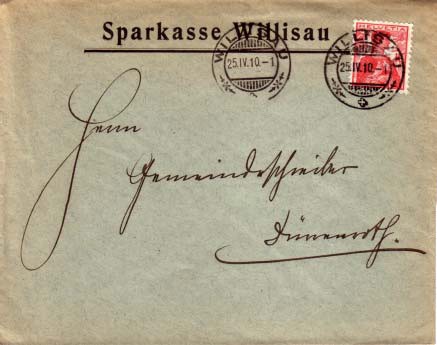 Sparkasse Willisau
WILLISAU
25.IV.10.-1
WILLISAU
25.IV.10.-1
HELVETIA
Herrn
Gemeindeschreiber